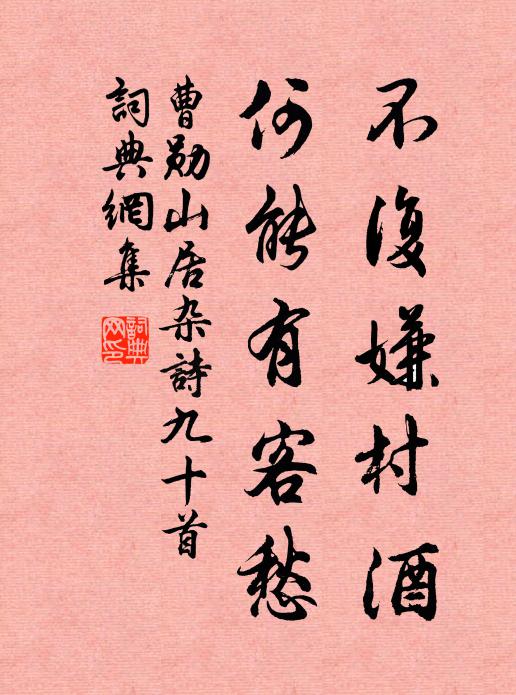 不復嫌村酒
何能有客愁
曹勛山居杂詩九十首
詞典網集
詞典網印